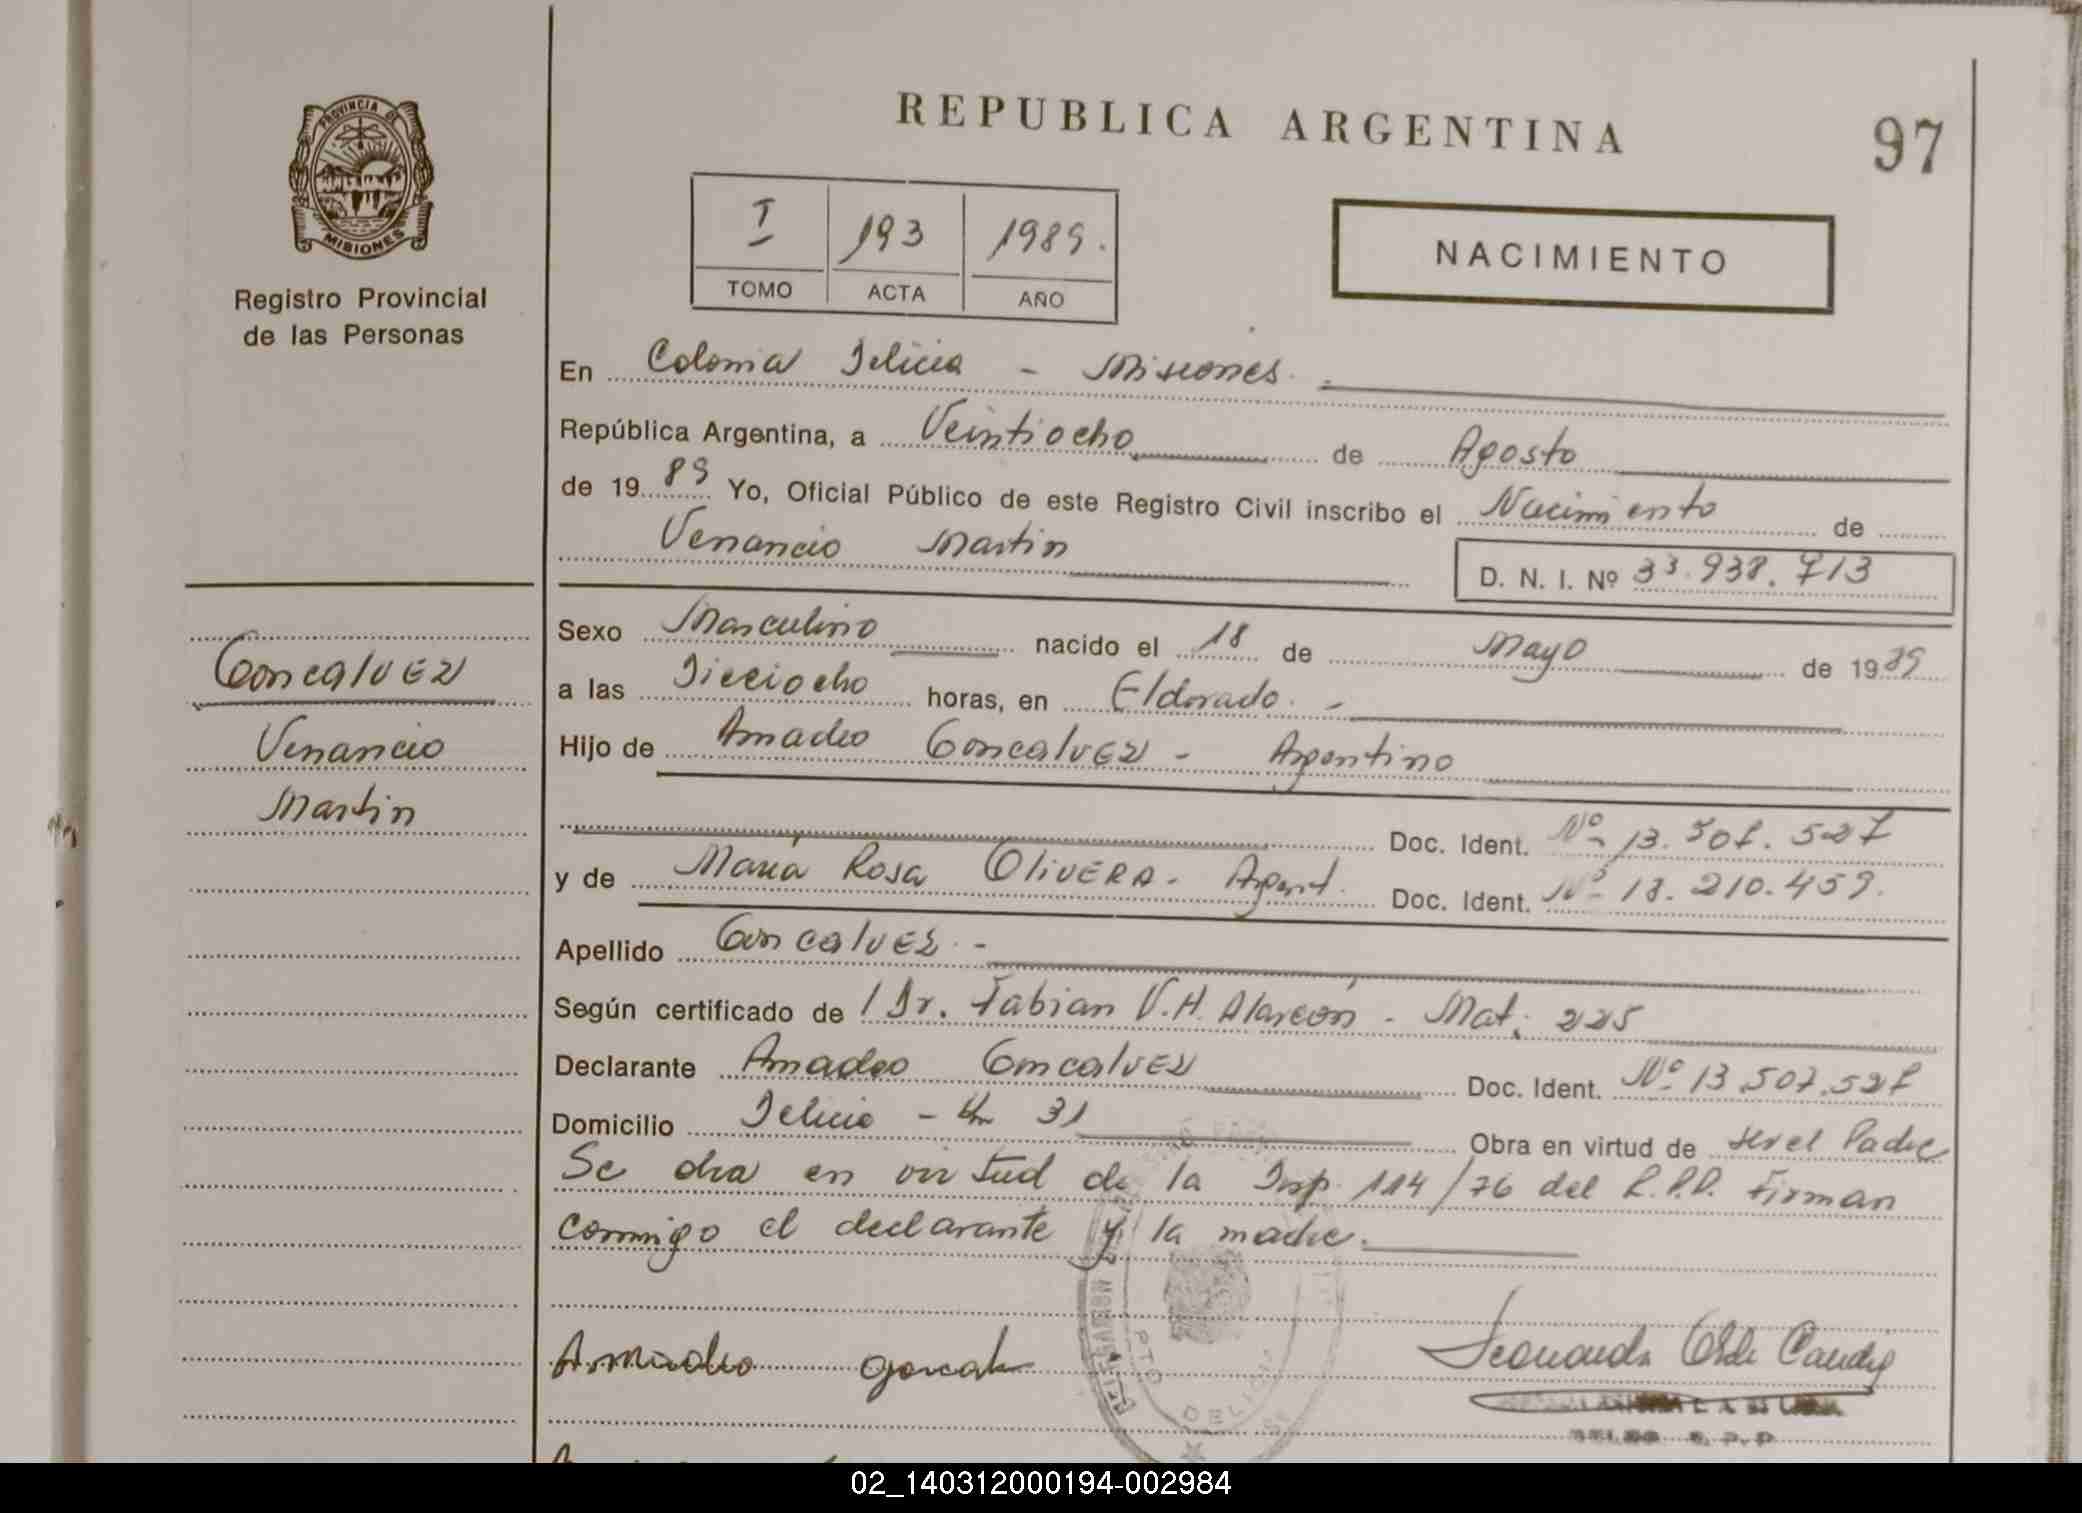 REPUBLICA ARGENTINA
97
PROVINCIA DE
MISIONES
Registro Provincial
de las Personas
I 193 1989.
TOMO ACTA AÑO
NACIMIENTO
En Colonia Delicia - Misiones.
República Argentina, a Veintiocho de Agosto
de 19 89 Yo, Oficial Público de este Registro Civil inscribo el Nacimiento de
Venancio Martin
D. N. I. Nº 33.938.713
Goncalvez
Venancio
Martin
Sexo Masculino nacido el 18 de Mayo de 19 89
a las Dieciocho horas, en Eldorado. -
Hijo de Amadeo Goncalvez - Argentino
Doc. Ident. Nº 13.507.527
y de María Rosa Olivera - Argent. Doc. Ident. Nº 18.210.459.
Apellido Goncalvez. -
Según certificado de / Dr. Fabian V.H. Alarcón - Mat. 225
Declarante Amadeo Goncalvez Doc. Ident. Nº 13.507.527
Domicilio Delicia - Km 31 Obra en virtud de ser el Padre
Se dra en virtud de la Insp. 114/76 del R.P.P. Firman
conmigo el declarante y la madre.
DELICIA
02_140312000194-002984